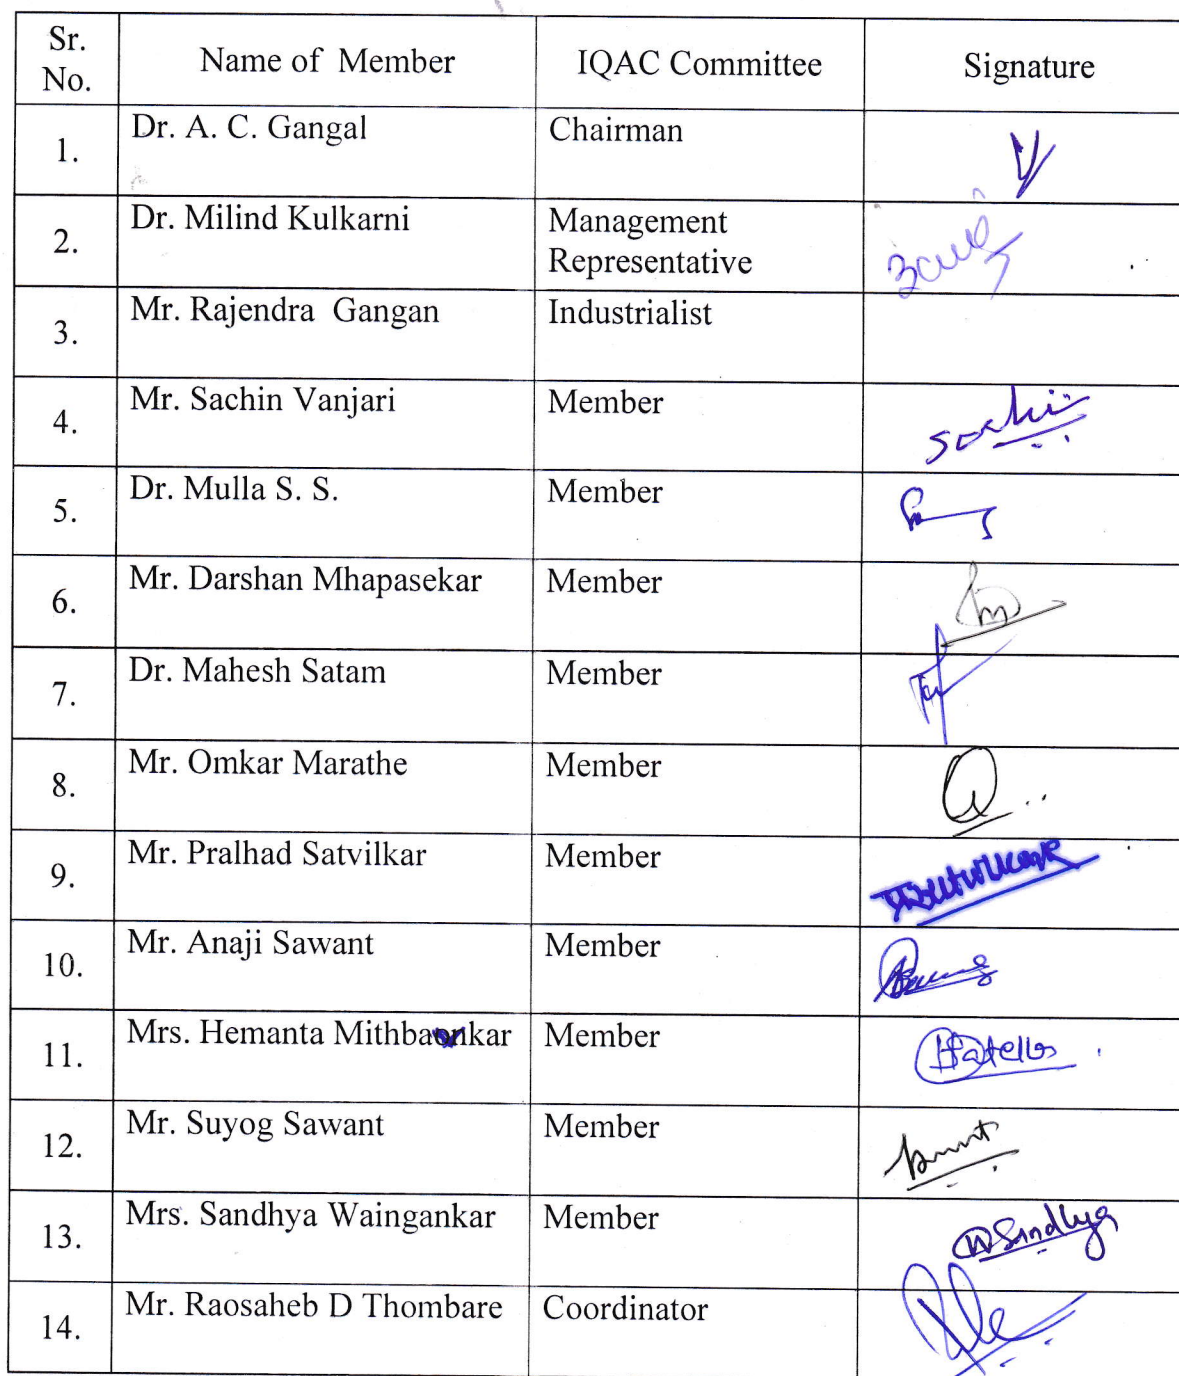 Sr. No. Name of Member IQAC Committee Signature
1. Dr. A. C. Gangal Chairman
2. Dr. Milind Kulkarni Management Representative
3. Mr. Rajendra Gangan Industrialist
4. Mr. Sachin Vanjari Member Sachin
5. Dr. Mulla S. S. Member
6. Mr. Darshan Mhapasekar Member
7. Dr. Mahesh Satam Member
8. Mr. Omkar Marathe Member
9. Mr. Pralhad Satvilkar Member
10. Mr. Anaji Sawant Member
11. Mrs. Hemanta Mithbaonkar Member
12. Mr. Suyog Sawant Member
13. Mrs. Sandhya Waingankar Member W Sandhya
14. Mr. Raosaheb D Thombare Coordinator